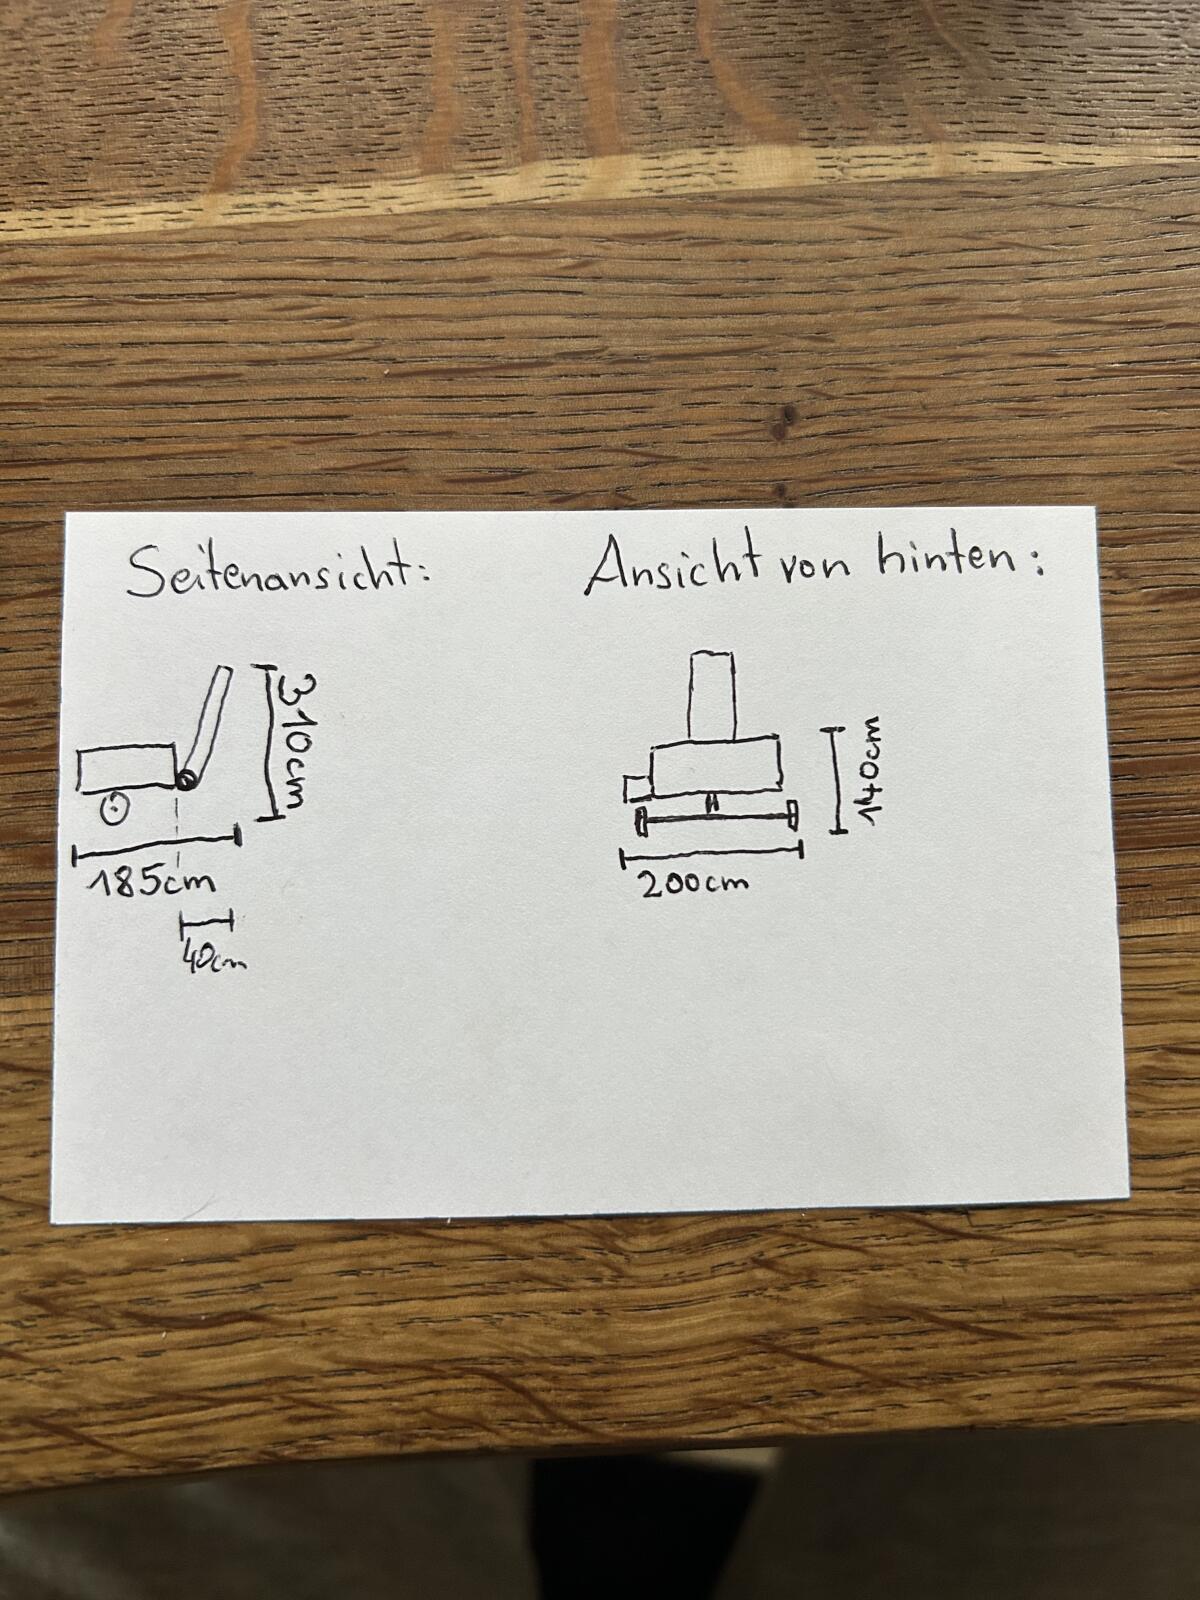 Seitenansicht:
310cm
185cm
40cm
Ansicht von hinten:
140cm
200cm